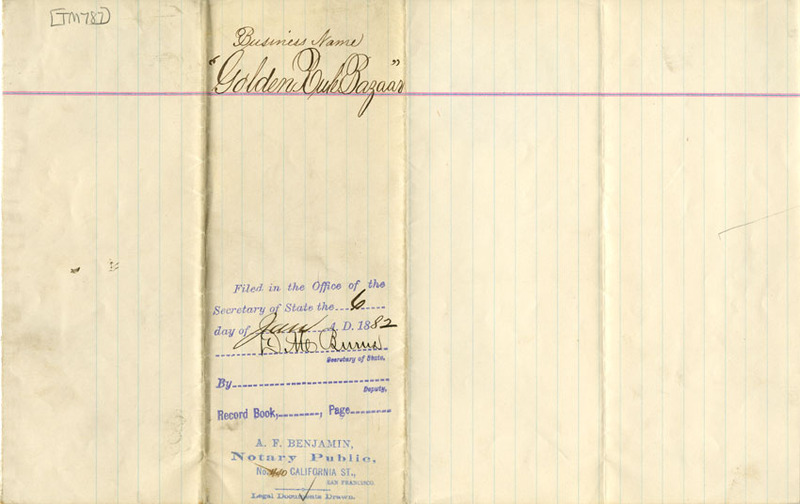 [TM787]
Business Name
"Golden Rule Bazaar"
Filed in the Office of the
Secretary of State the 6
day of Jan A. D. 1882
D. M. Burns
Secretary of State.
By
Deputy.
Record Book, , Page
A. F. BENJAMIN,
Notary Public,
No. CALIFORNIA ST.,
SAN FRANCISCO.
Legal Documents Drawn.